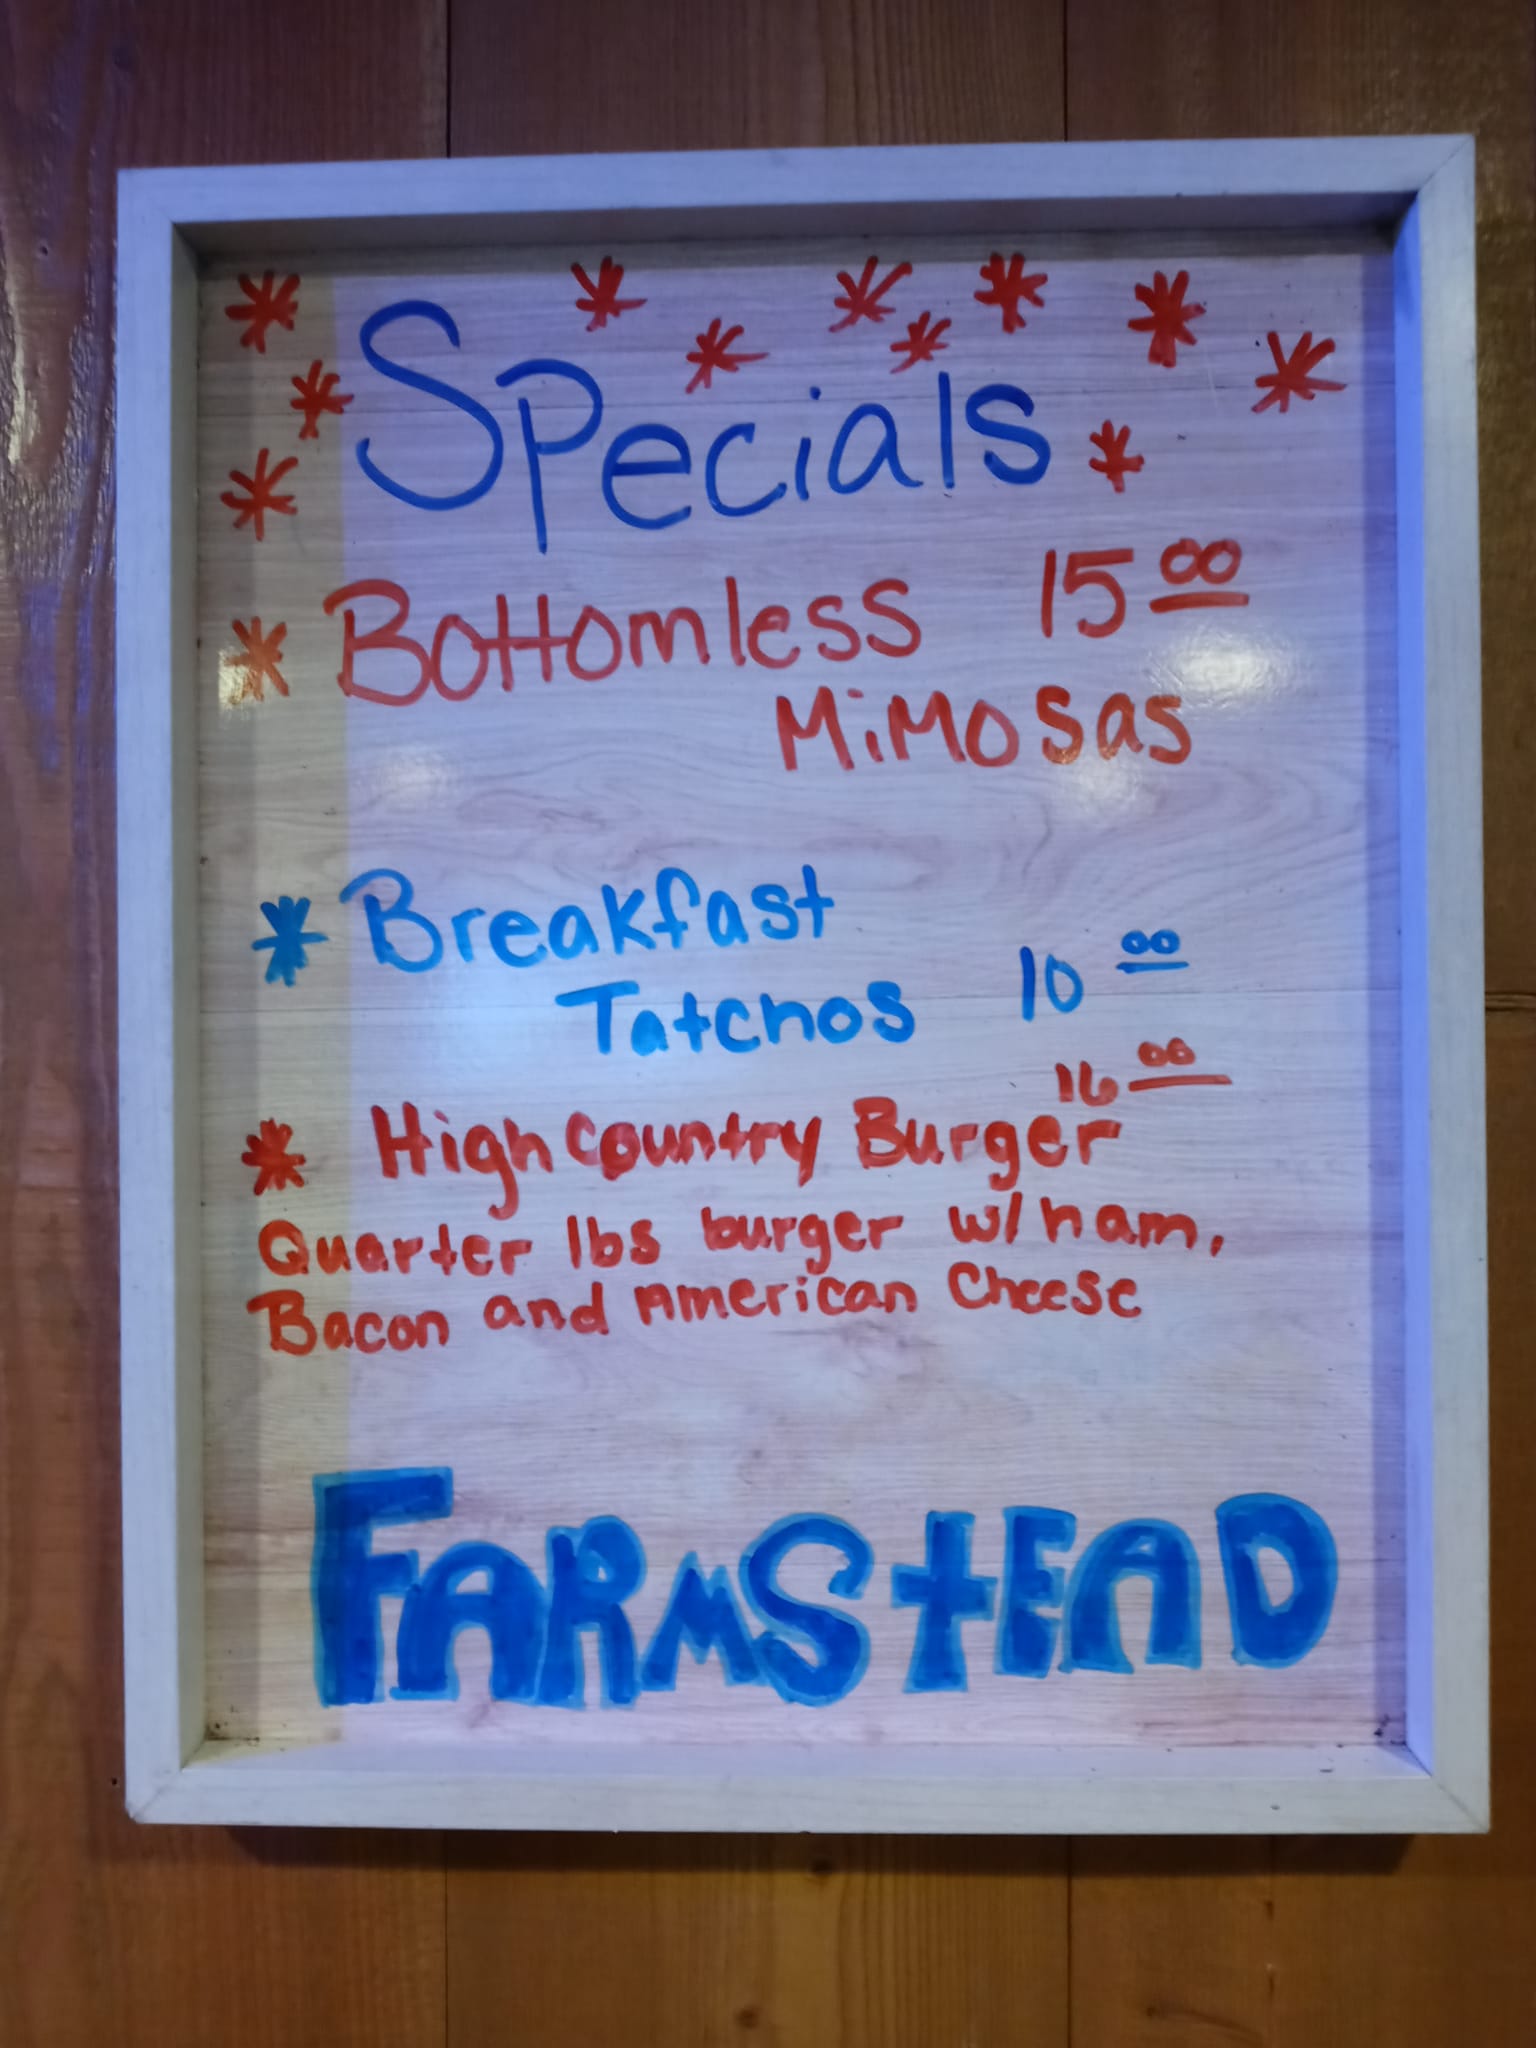 Specials
Bottomless 15 00
Mimosas
Breakfast
Tatchos 10 00
16 00
High Country Burger
Quarter lbs burger w/ ham,
Bacon and American Cheese
FARMSTEAD